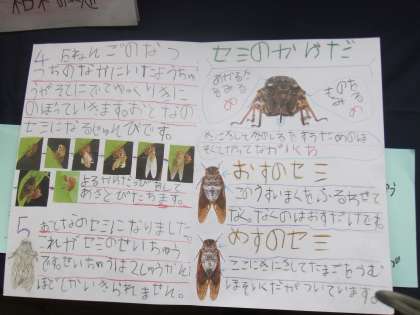 4 5ねんごのなつ
つちのなかにいたようちゅ
うがそとにでてゆっくりきに
のぼっていきます。おとなの
セミになるじゅんびです。
よるからだっぴをして
あさとびたちます。
5 おとなのセミになりました。
これがセミのせいちゅう
です。せいちゅうは2しゅうかん
ほどしかいきられません。
セミのからだ
ものをみる
め
おすのセミ
このうすいまくをふるわせて
なくのはおすだけです。
めすのセミ
ここにきにさしてたまごをうむ
ほそいくだがついています。